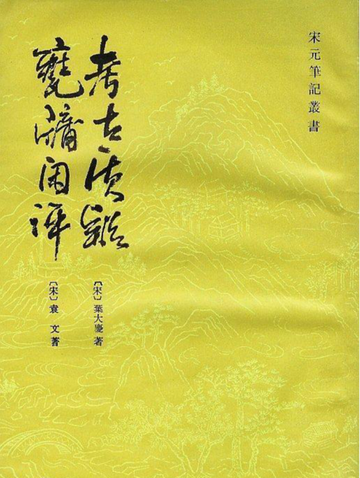 宋元筆記叢書
考古质疑
〔宋〕葉大慶著
甕牖闲评
〔宋〕袁文著